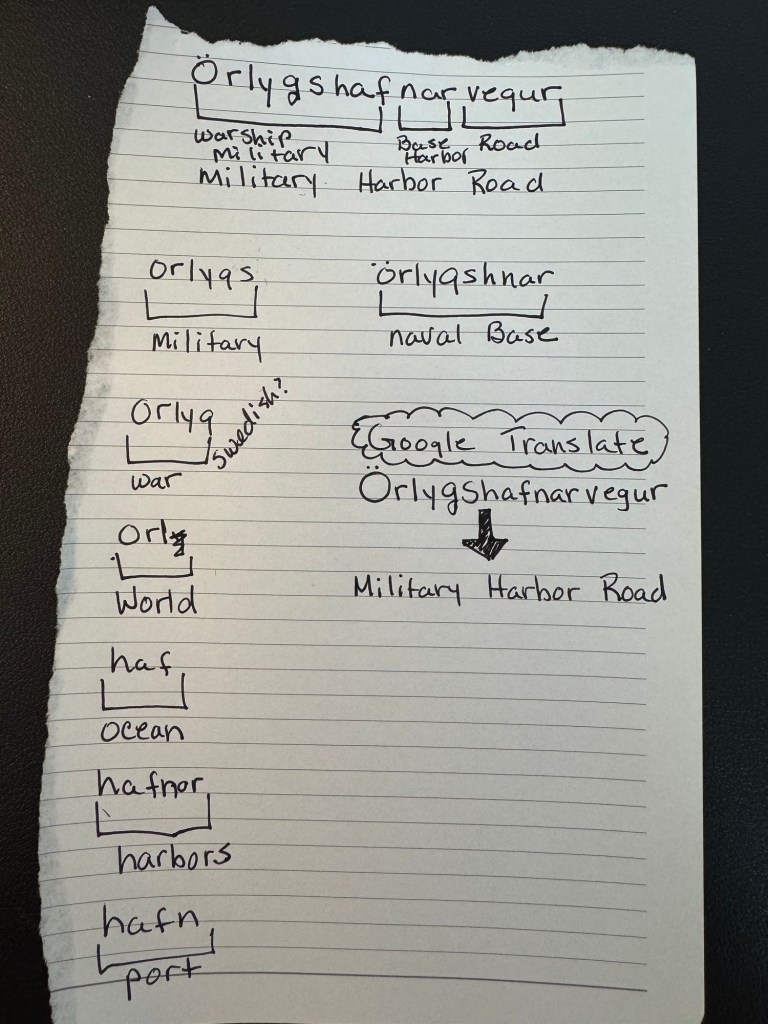 Örlygshafnarvegur
warship Base Road
Military Harbor
Military Harbor Road
orlygs
Military
örlygshnar
naval Base
Orlyg
Swedish?
war
Google Translate
Örlygshafnarvegur
Military Harbor Road
Orl
World
haf
ocean
hafnor
harbors
hafn
port